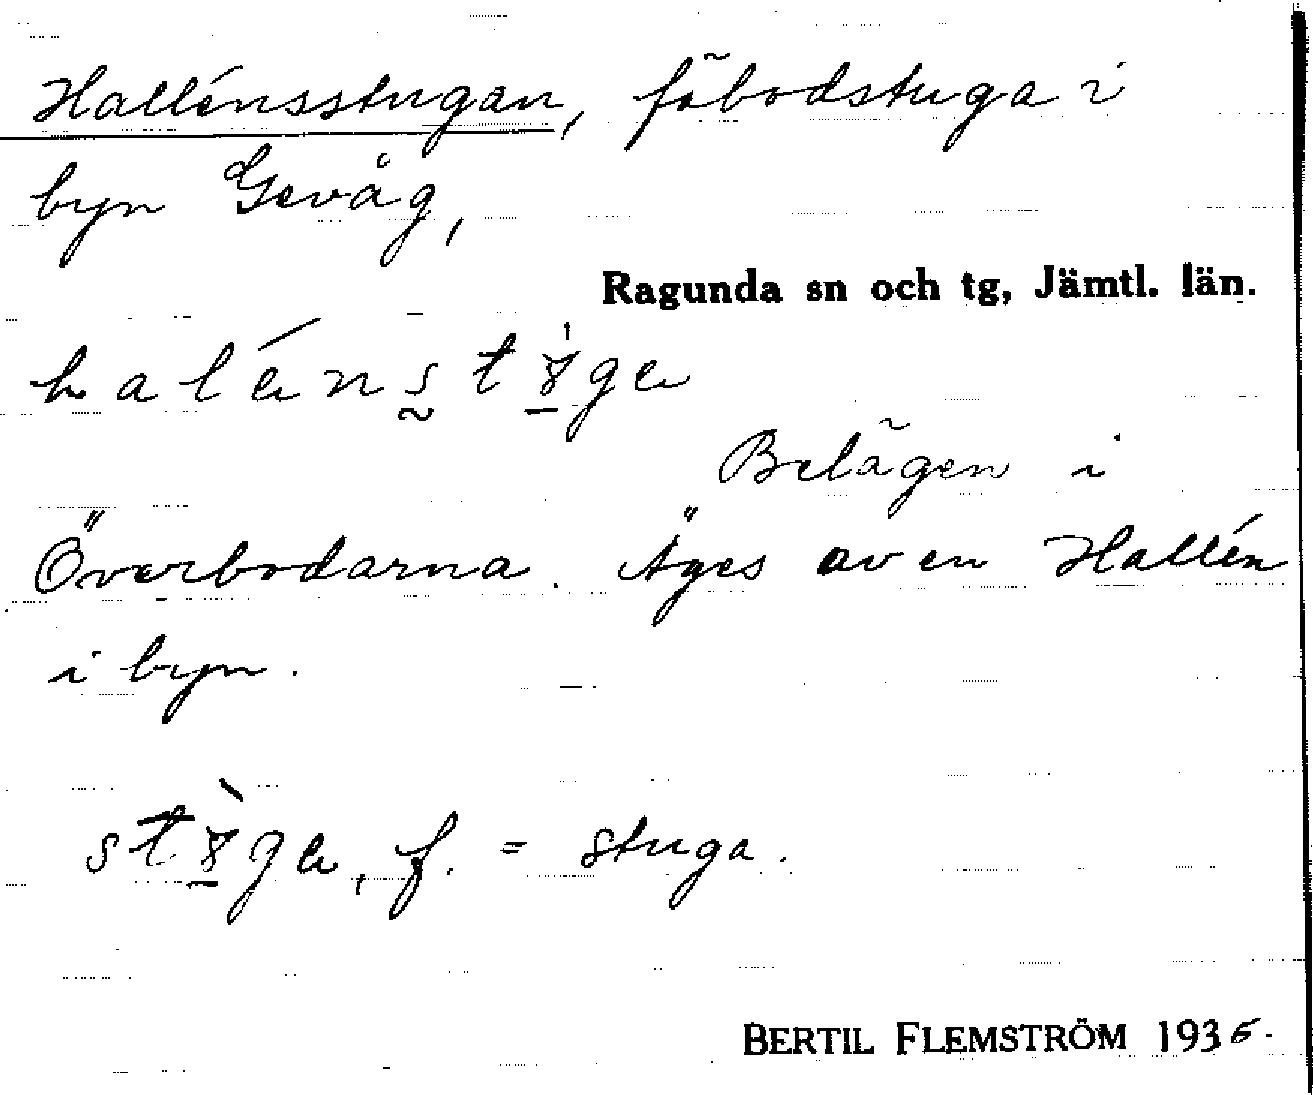 Hallénsstugan, fäbodstuga i
byn Gevåg,
Ragunda sn och tg, Jämtl. län.
Belägen i
Överbodarna. Äges av en Hallén
i byn.
f. = stuga.
BERTIL FLEMSTRÖM 1935.